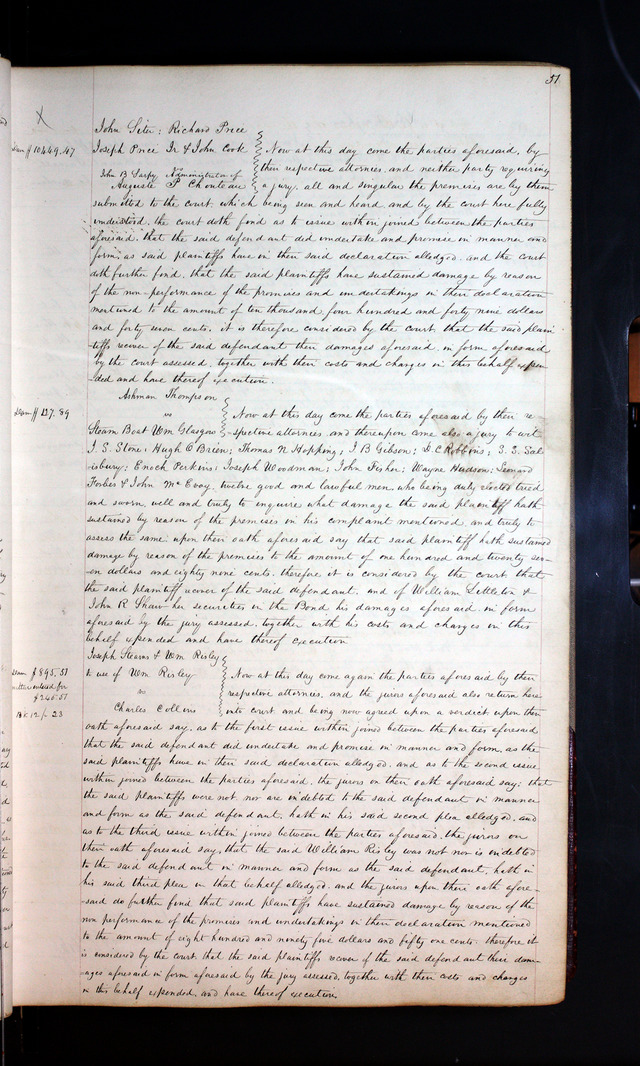 51
X
John Siter; Richard Price
Joseph Price Jr & John Cook
vs
John B Sarpy Administrator of
Auguste P Chouteau
Dam $10449.47
Now at this day come the parties aforesaid, by
their respective attornies, and neither party requiring
a jury, all and singular the premises, are by them
submitted to the court, which being seen and heard, and by the court here fully
understood, the court doth find as to issue within joined between the parties
aforesaid, that the said defendant did undertake and promise in manner and
form, as said plaintiffs have in their said declaration alledged, and the court
doth further find, that the said plaintiffs have sustained damage by reason
of the non-performance of the promises and undertakings in their declaration
mentioned to the amount of ten thousand, four hundred and forty nine dollars
and forty seven cents, it is therefore considered by the court that the said plain
tiffs recover of the said defendant their damages aforesaid, in form aforesaid
by the court assessed, together with their costs and charges in this behalf expen
ded and have thereof execution.
Ashman Thompson
vs
Steam Boat Wm Glasgow
Dam $127.89
Now at this day come the parties aforesaid by their re
spective attornies, and thereupon come also a jury to wit
J. S. Stone, Hugh O Brien; Thomas N Hopping; J B Gibson; D. C. Robbins; S. S. Sal
isbury; Enoch Perkins; Joseph Woodman; John Fisher; Wayne Hudson; Leonard
Forbes & John McEvoy, twelve good and lawful men, who being duly elected tried
and sworn, well and truly to inquire what damage the said plaintiff hath
sustained by reason of the premises in his complaint mentioned, and truly to
assess the same upon their oath aforesaid say that said plaintiff hath sustained
damage by reason of the premises to the amount of one hundred and twenty sev-
-en dollars and eighty nine cents. therefore it is considered by the court that
the said plaintiff recover of the said defendant, and of William Littleton &
John R Shaw her securities in the Bond his damages aforesaid, in form
aforesaid by the jury assessed, together with his costs and charges in this
behalf expended and have thereof execution
Joseph Stearns & Wm Risley
to use of Wm Risley
vs
Charles Collins
Dam $895.51
entered for
$245.51
12/- 23
Now at this day come again the parties aforesaid by their
respective attornies, and the jurors aforesaid also return here
into court and being now agreed upon a verdict upon their
oath aforesaid say, as to the first issue within joined between the parties aforesaid
that the said defendant did undertake and promise in manner and form, as the
said plaintiffs have in their said declaration alledged, and as to the second issue
within joined between the parties aforesaid, the jurors on their oath aforesaid say; that
the said plaintiffs were not, nor are indebted to the said defendant in manner
and form as the said defendant, hath in his said second plea alledged, and
as to the third issue within joined between the parties aforesaid, the jurors on
their oath aforesaid say, that the said William Risley was not nor is indebted
to the said defendant in manner and form as the said defendant, hath in
his said third plea in that behalf alledged, and the jurors upon their oath afore-
-said do further find that said plaintiffs have sustained damage by reason of the
non performance of the promises and undertakings in their declaration mentioned
to the amount of eight hundred and ninety five dollars and fifty one cents. therefore it
is considered by the court that the said plaintiffs recover of the said defendant their dam-
-ages aforesaid in form aforesaid by the jury assessed, together with their costs and charges
in this behalf expended, and have thereof execution